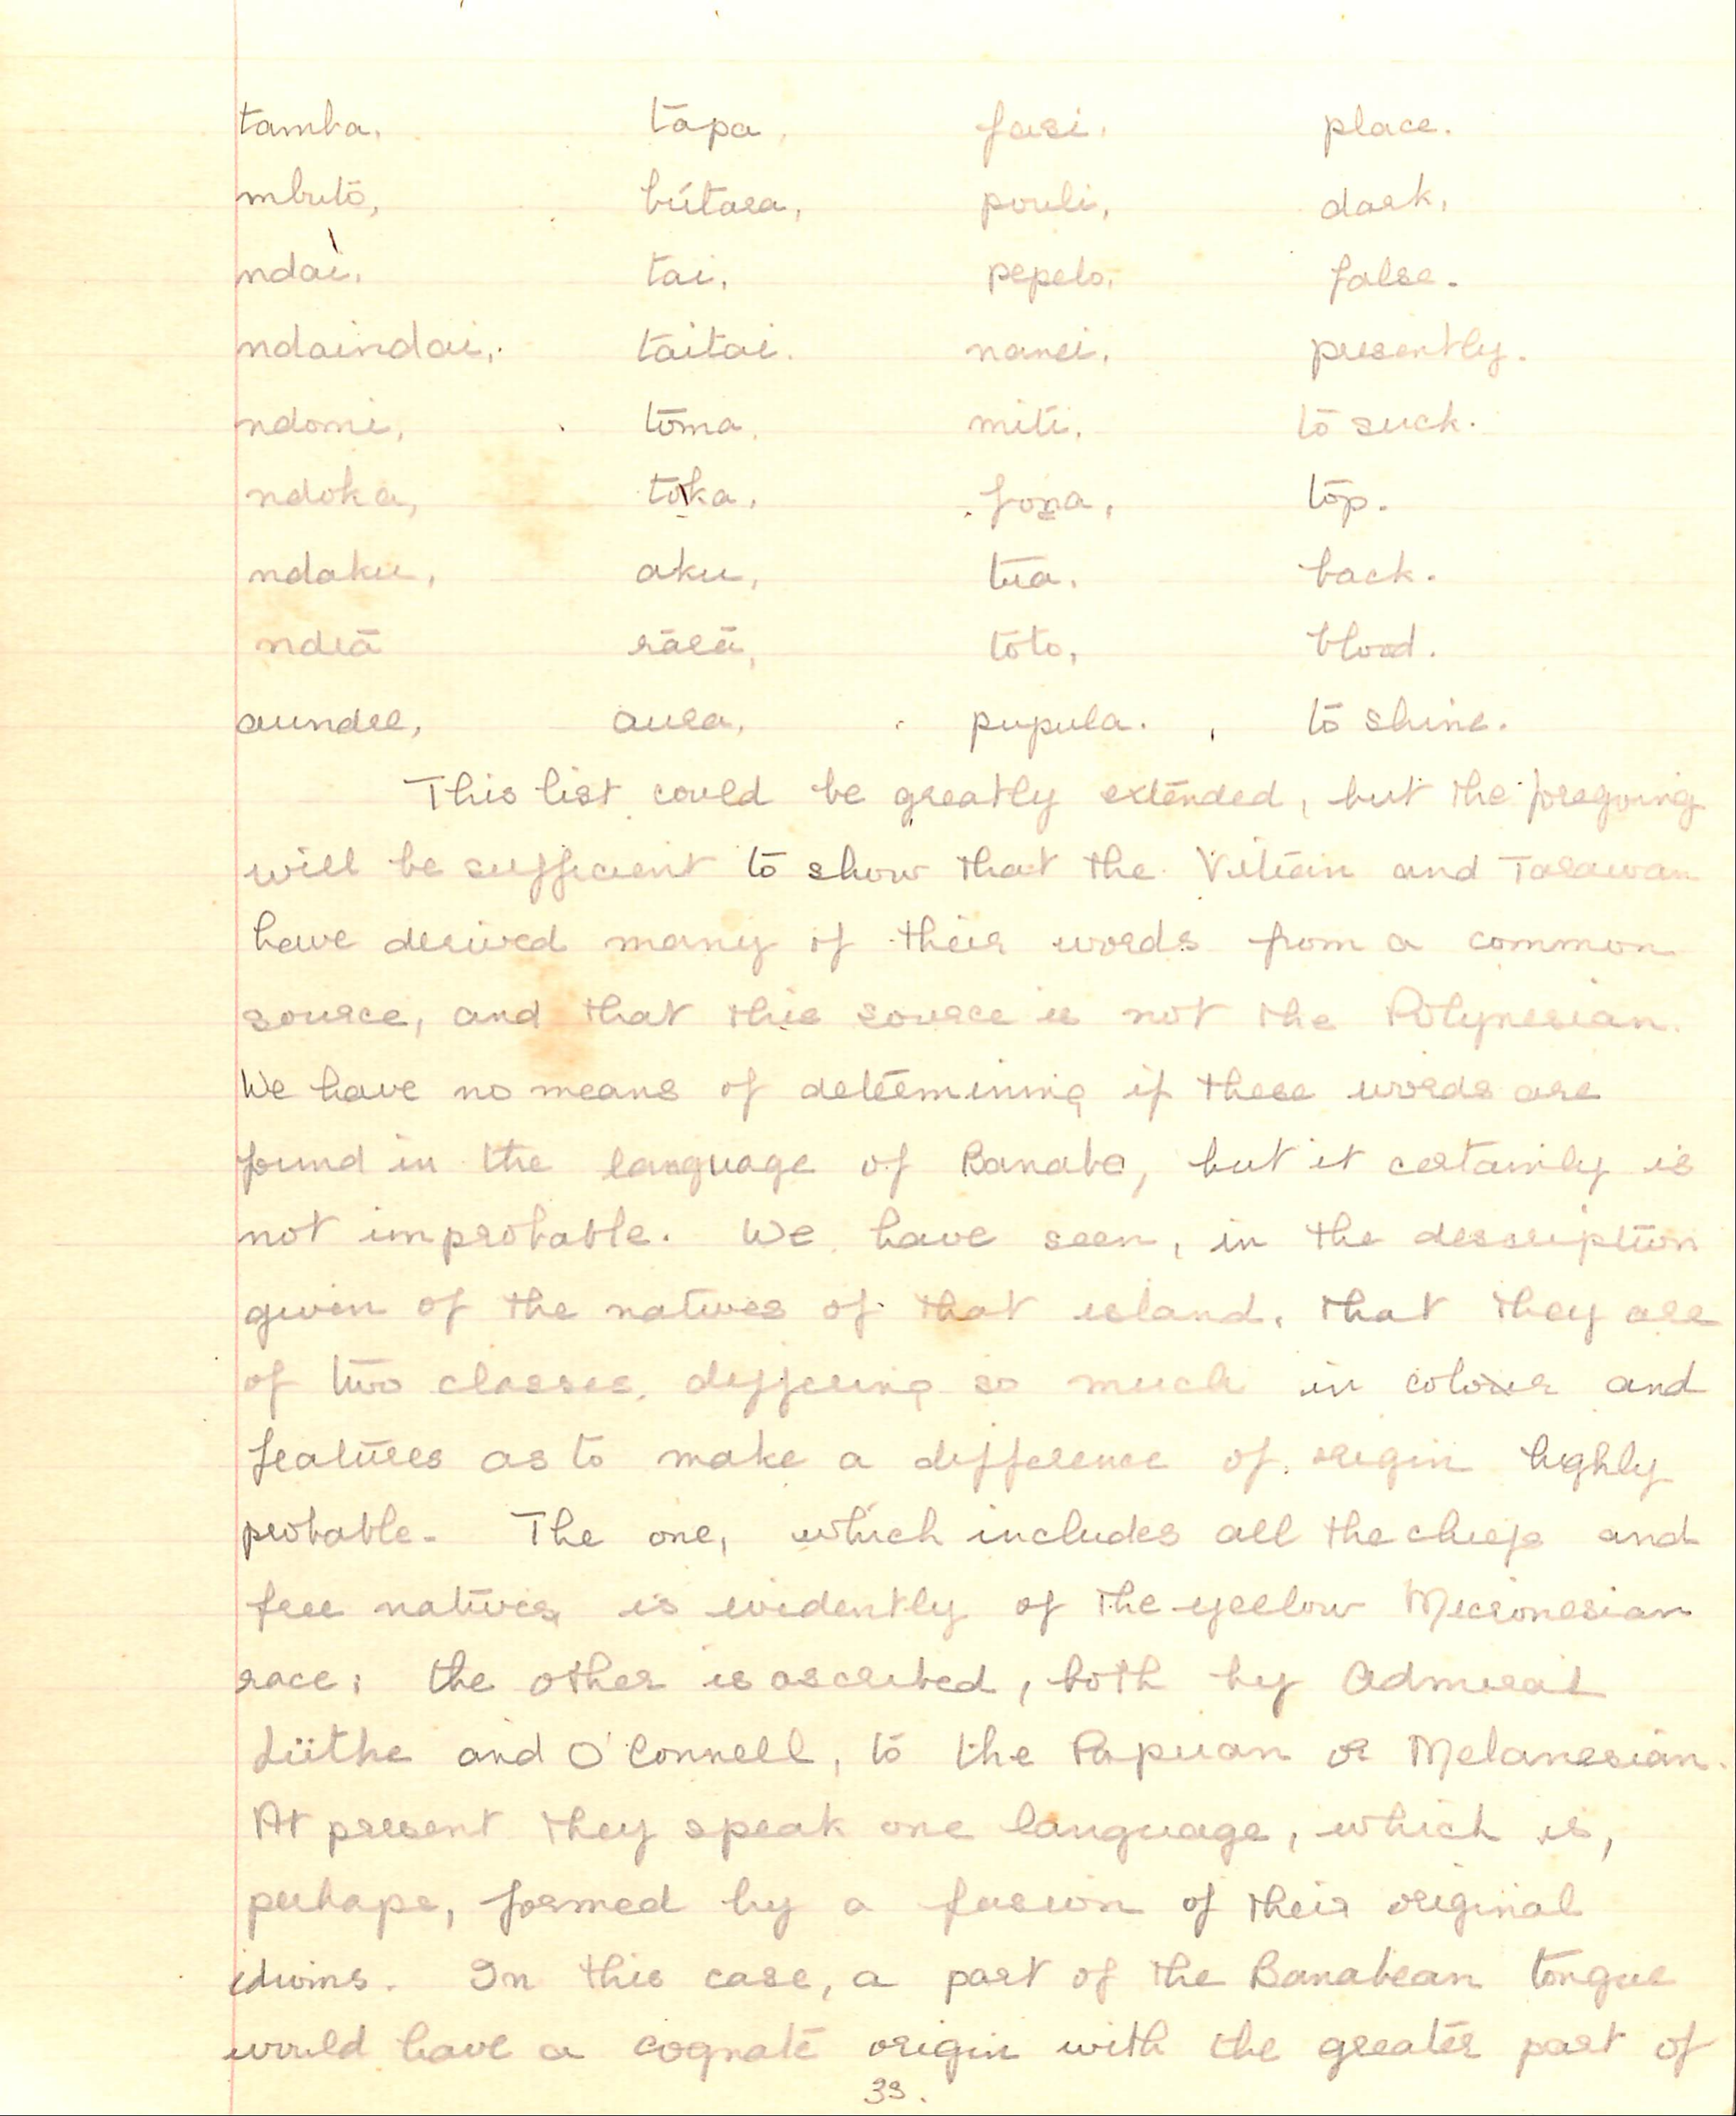 tamba, tapa, fasi, place.
mbutō, bútara, pouli, dark,
ndai, tai, pepelo, false.
ndaindai, taitai. nanei, presently.
ndomi, toma, miti, to suck.
ndoka, toka, foṉa, top.
ndaku, aku, tua, back.
ndrā rārā, toto, blood.
aundre, aura, pupula. to shine.
This list could be greatly extended, but the foregoing
will be sufficient to show that the Vitian and Tarawan
have derived many of their words from a common
source, and that this source is not the Polynesian.
We have no means of determining if these words are
found in the language of Banabe, but it certainly is
not improbable. We have seen, in the description
given of the natives of that island, that they are
of two classes, differing so much in colour and
features as to make a difference of origin highly
probable. The one, which includes all the chiefs and
free natives, is evidently of the yellow Micronesian
race; the other is ascribed, both by Admiral
Lütke and O'Connell, to the Papuan or Melanesian.
At present they speak one language, which is,
perhaps, formed by a fusion of their original
idioms. In this case, a part of the Banabean tongue
would have a cognate origin with the greater part of
33.